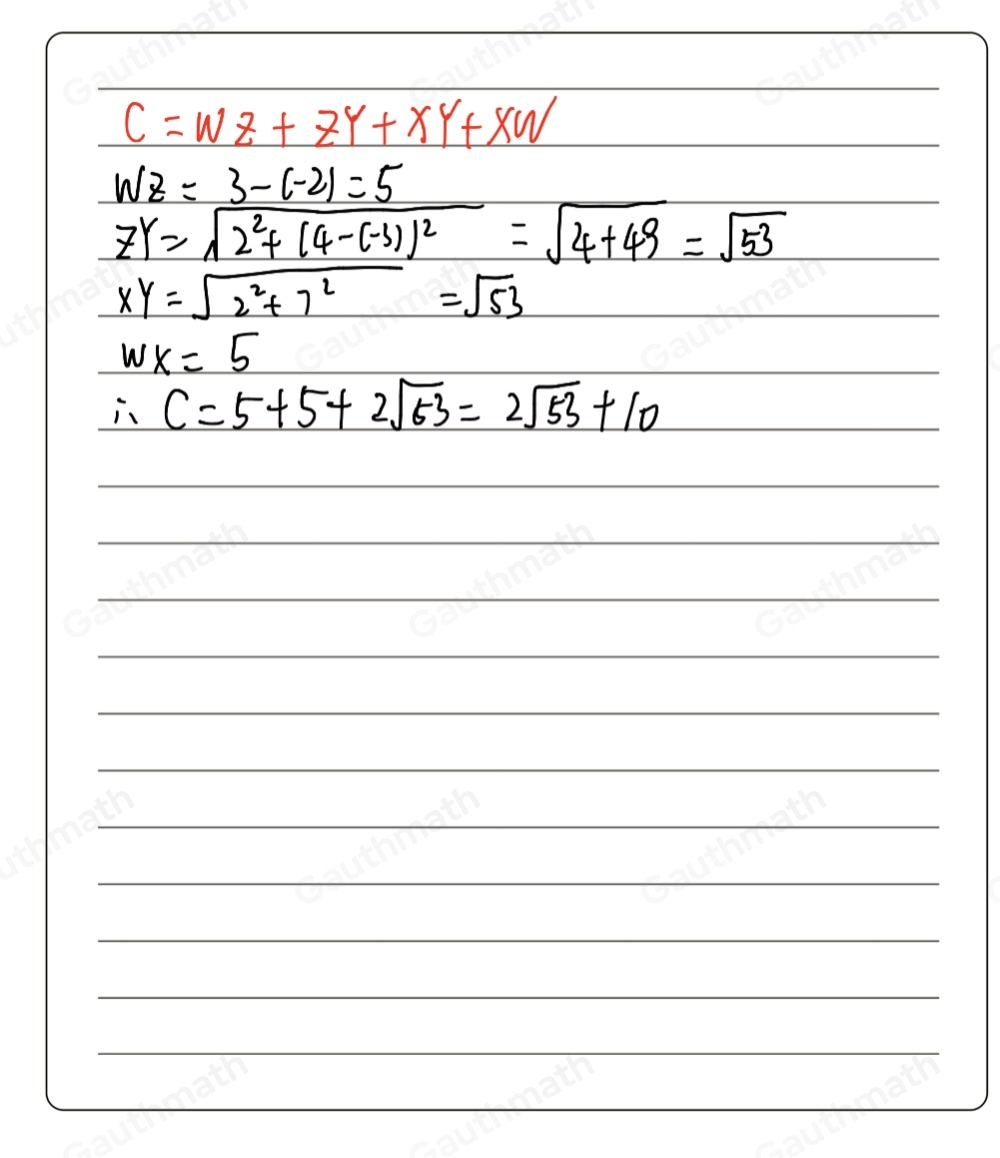 C = WZ + ZY + XY + XW
WZ = 3-(-2) = 5
ZY = √(2²+(4-(-3))²) = √(4+49) = √53
XY = √(2²+7²) = √53
WX = 5
∴ C = 5+5+2√53 = 2√53+10